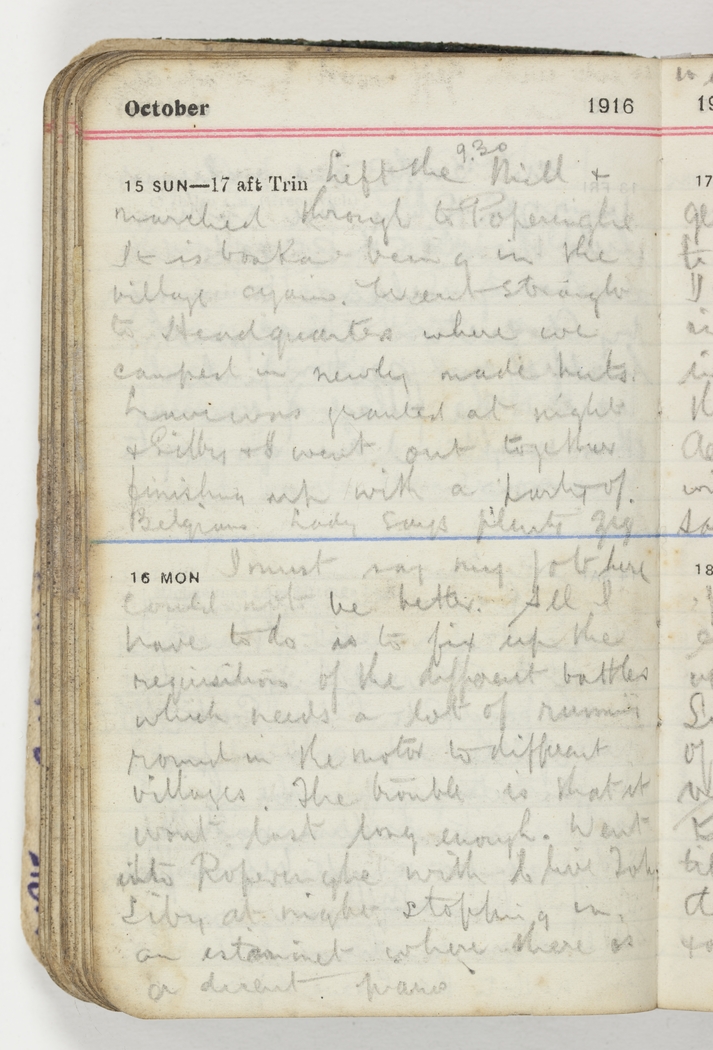 October 1916
9.30
15 SUN—17 aft Trin Left the Mill +
marched through to Poperinghe
It is bonka being in the
village again. Went straight
to Headquarters where we
camped in newly made huts.
Leave was granted at night
& Gilby & I went out together
finishing up with a party of
Belgians Lady says plenty zig
16 MON I must say my job here
could not be better. All I
have to do is to fix up the
requisitions of the different battles
which needs a lot of running
round in the motor to different
villages. The trouble is that it
wont last long enough. Went
into Poperinghe with
at night stopping in
an estaminet where there is
a decent piano
17
18